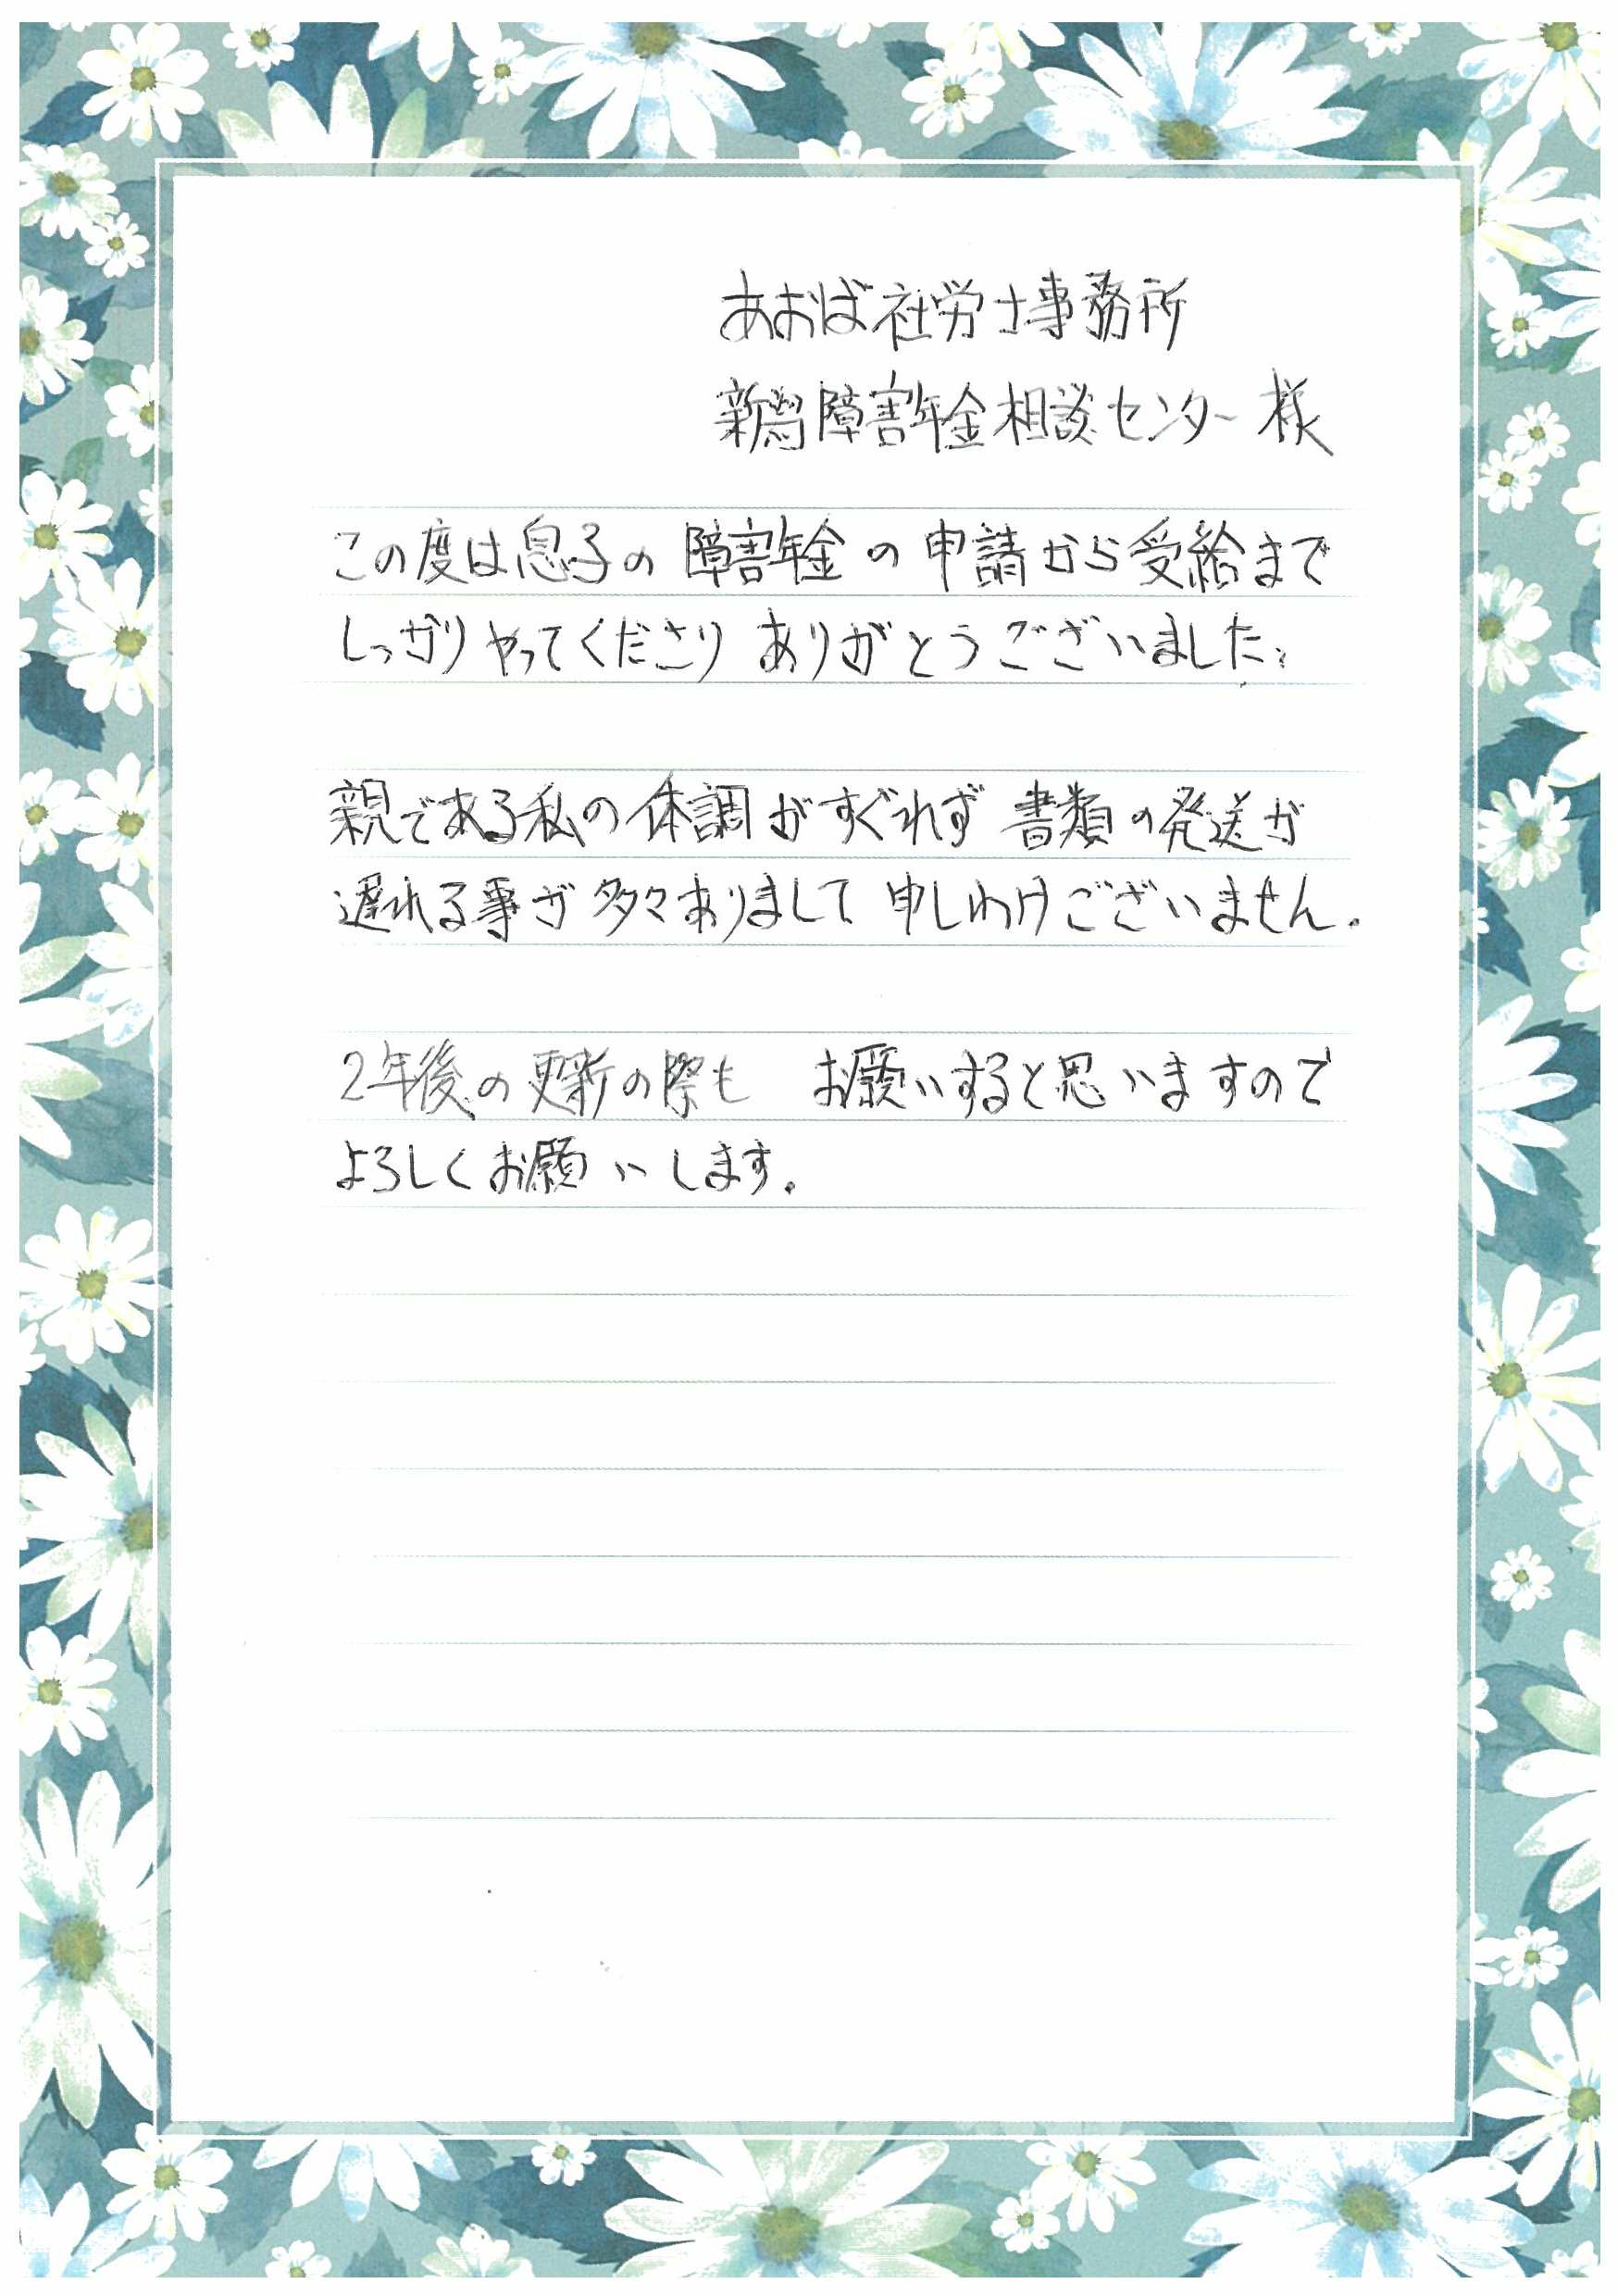 あおば社労士事務所
新潟障害年金相談センター 様
この度は息子の 障害年金の申請から受給まで
しっかりやってくださり ありがとうございました。
親である私の体調がすぐれず 書類の発送が
遅れる事が多々ありまして 申しわけございません。
2年後の更新の際も お願いすると思いますので
よろしくお願いします。